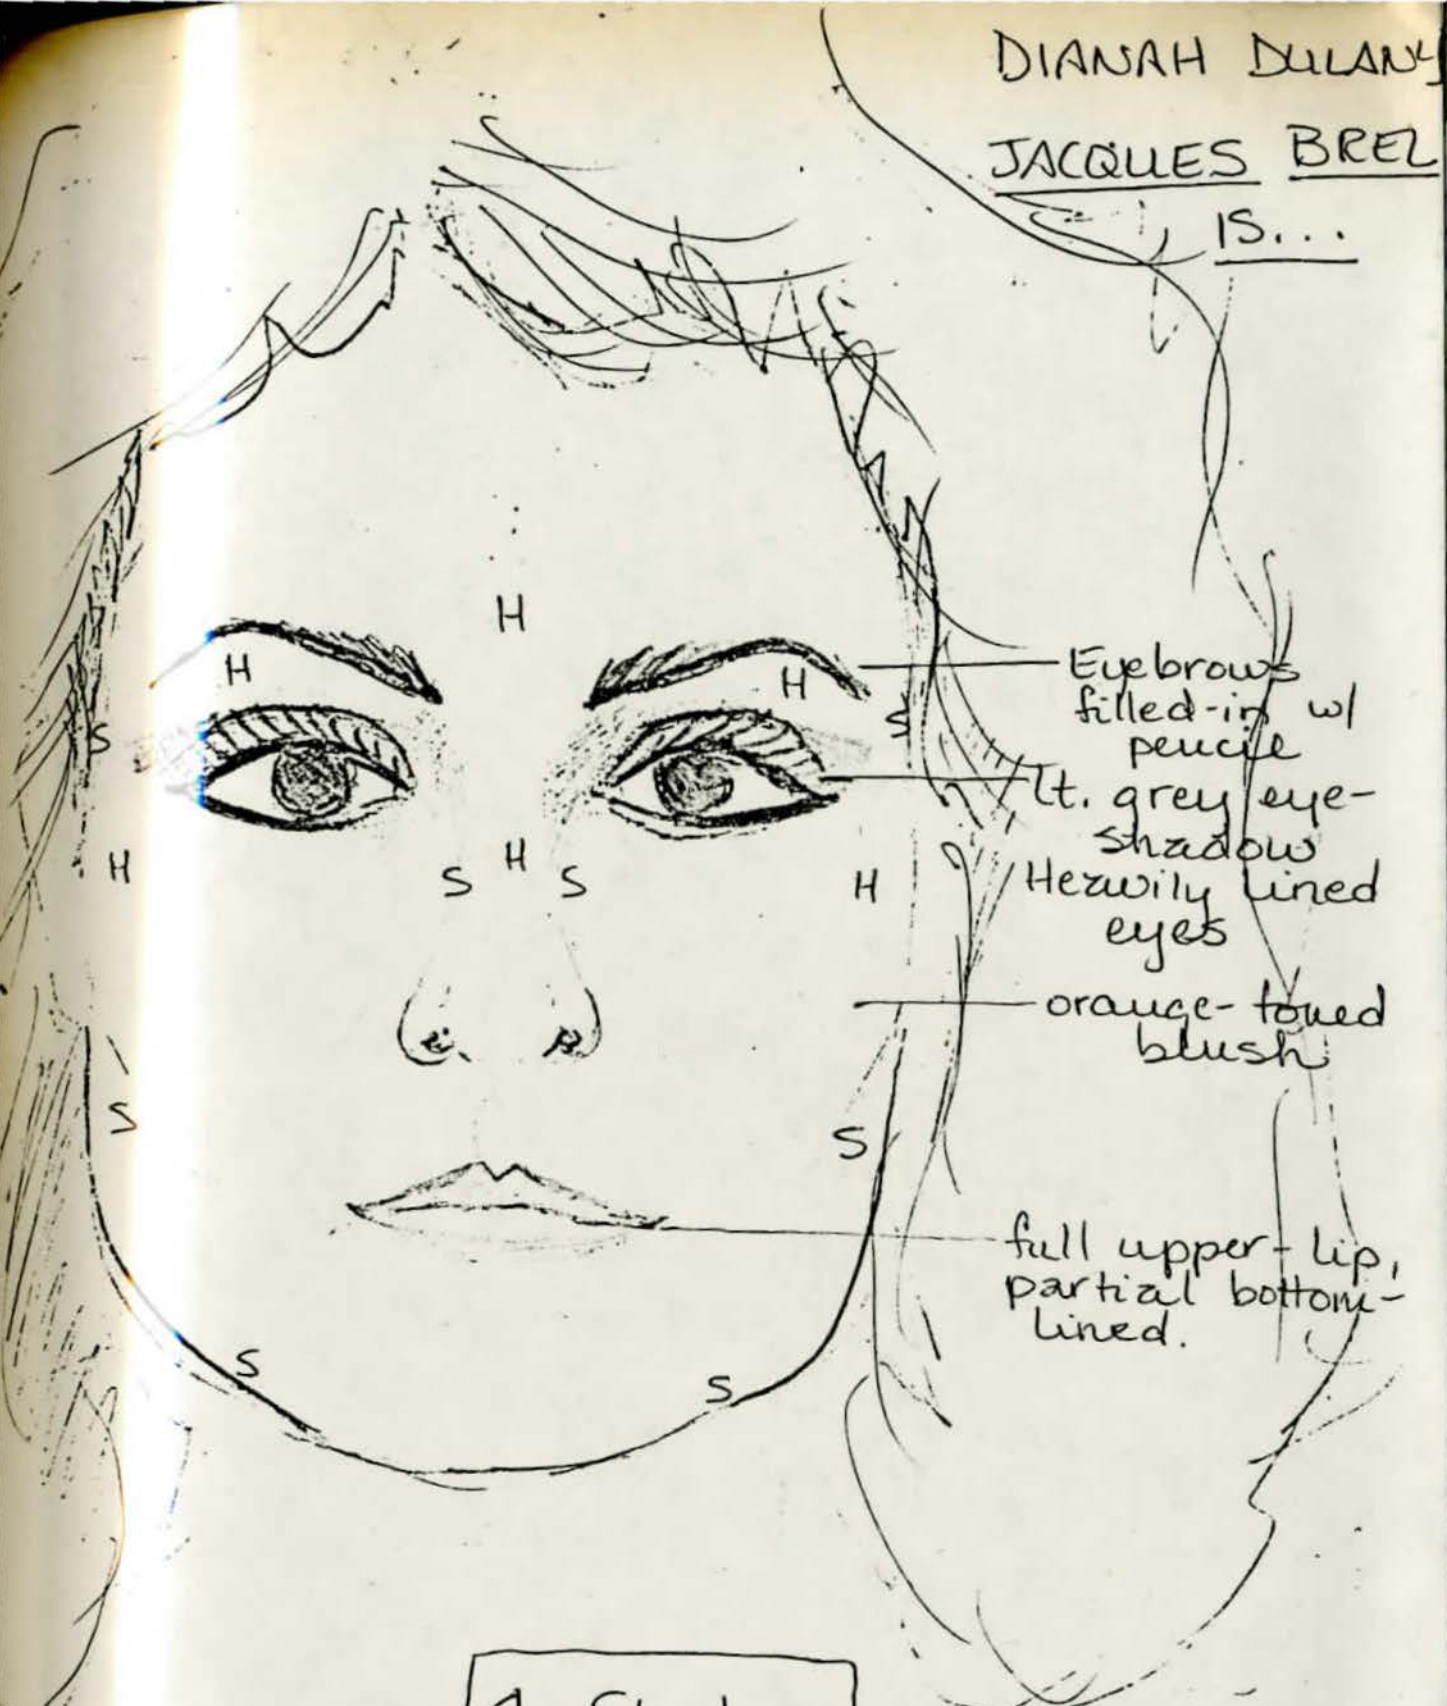 DIANAH DULANY
JACQUES BREL
IS...
H
H
H
S
S
Eyebrows
filled-in w/
pencil
lt. grey eye-
shadow
Heavily lined
eyes
H
S
S
H
H
orange-toned
blush
S
S
full upper-lip,
partial bottom-
lined.
S
S